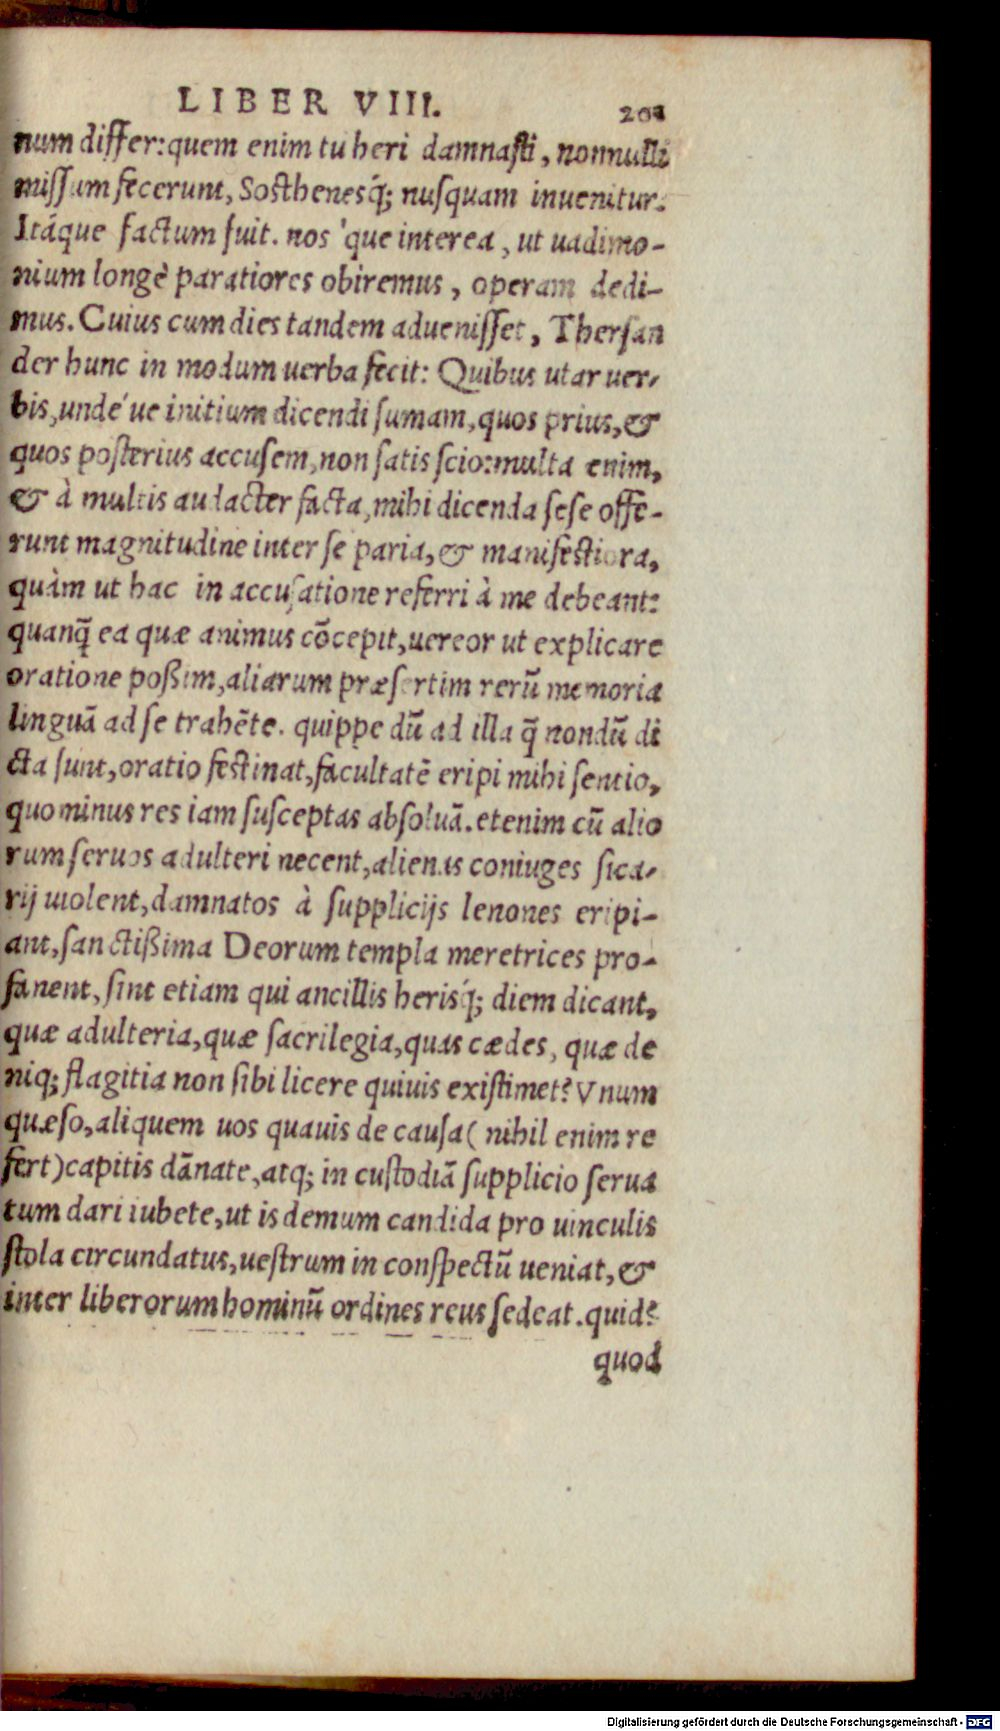 LIBER VIII. 201
num differ: quem enim tu heri damnasti, nonnulli
missum fecerunt, Sosthenesq́; nusquam inuenitur.
Itáque factum fuit. nos'que interea, ut uadimo-
nium longè paratiores obiremus, operam dedi-
mus. Cuius cum dies tandem aduenisset, Thersan
der hunc in modum uerba fecit: Quibus utar uer-
bis, unde'ue initium dicendi sumam, quos prius, &
quos posterius accusem, non satis scio: multa enim,
& à multis audacter facta, mihi dicenda sese offe-
runt magnitudine inter se paria, & manifestiora,
quàm ut hac in accusatione referri à me debeant:
quanq̃ ea quæ animus cõcepit, uereor ut explicare
oratione poßim, aliarum præsertim rerũ memoria
linguã ad se trahẽte. quippe dũ ad illa q̃ nondũ di
cta sunt, oratio festinat, facultatẽ eripi mihi sentio,
quominus res iam susceptas absoluã. etenim cũ alio
rum seruos adulteri necent, alienas coniuges sica-
rij uiolent, damnatos à supplicijs lenones eripi-
ant, sanctißima Deorum templa meretrices pro-
fanent, sint etiam qui ancillis herisq́; diem dicant,
quæ adulteria, quæ sacrilegia, quas cædes, quæ de
niq; flagitia non sibi licere quiuis existimet? Vnum
quæso, aliquem uos quauis de causa ( nihil enim re
fert) capitis dãnate, atq; in custodiã supplicio serua
tum dari iubete, ut is demum candida pro uinculis
stola circundatus, uestrum in conspectũ ueniat, &
inter liberorum hominũ ordines reus sedeat. quid?
quod
Digitalisierung gefördert durch die Deutsche Forschungsgemeinschaft - DFG